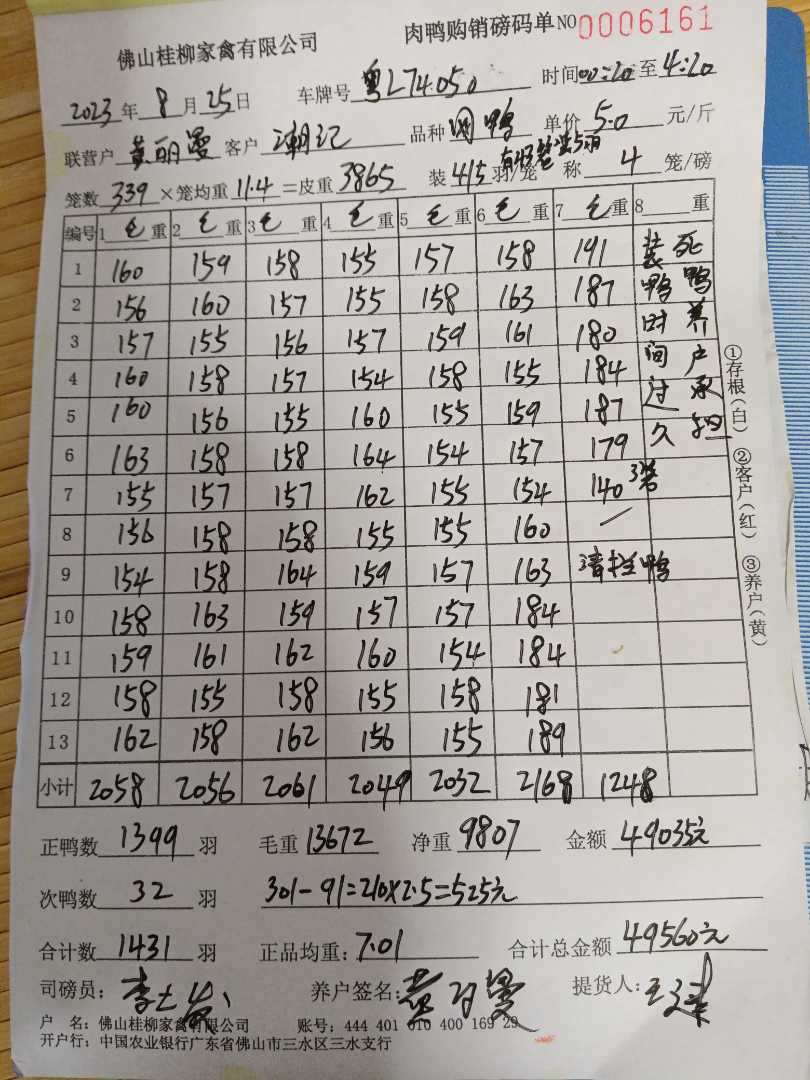 佛山桂柳家禽有限公司 肉鸭购销磅码单 NO 0006161
2023年8月25日 车牌号 粤L74050 时间00:20至4:20
联营户 黄丽曼 客户 潮记 品种 肉鸭 单价 5.0 元/斤
笼数 339 ×笼均重 11.4 =皮重 3865 装 4/5 羽/笼 称 4 笼/磅
编号 1 毛 重 2 毛 重 3 毛 重 4 毛 重 5 毛 重 6 毛 重 7 毛 重 8 重
1 160 159 158 155 157 158 191
2 156 160 157 155 158 163 187
3 157 155 156 157 159 161 180
4 160 158 157 154 158 155 184
5 160 156 155 160 155 159 187
6 163 158 158 164 154 157 179
7 155 157 157 162 155 154 140 3笼
8 156 158 158 155 155 160 /
9 154 158 164 159 157 163 清栏鸭
10 158 163 159 157 157 184
11 159 161 162 160 154 184
12 158 155 158 155 158 181
13 162 158 162 156 155 189
小计 2058 2056 2061 2049 2032 2168 1248
装鸭时间过久
死鸭养户承担
①存根(白) ②客户(红) ③养户(黄)
正鸭数 1399 羽 毛重 13672 净重 9807 金额 49035元
次鸭数 32 羽 301-91=210×2.5=525元
合计数 1431 羽 正品均重: 7.01 合计总金额 49560元
司磅员: 养户签名: 黄丽曼 提货人:
户 名: 佛山桂柳家禽有限公司 账号: 444 401 010 400 169 29
开户行: 中国农业银行广东省佛山市三水区三水支行